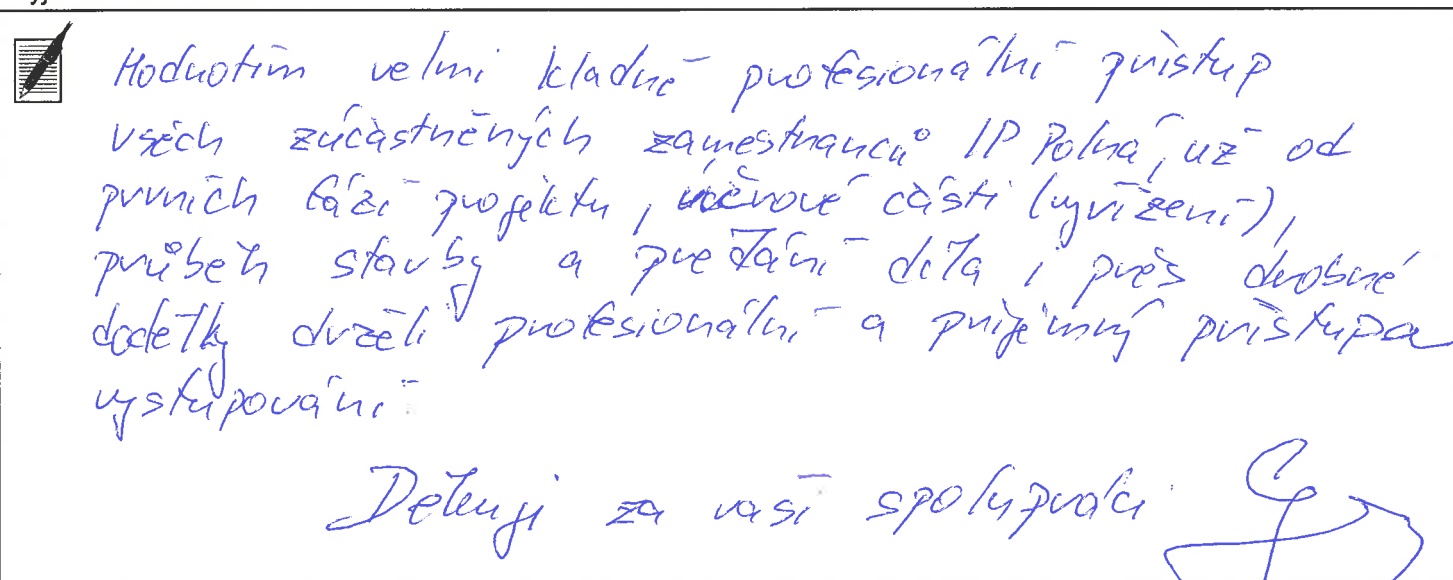 Hodnotím velmi kladně profesionální přístup
všech zúčastněných zaměstnanců IP Polná, už od
prvních fází projektu, úvěrové části (vyřízení),
průběh stavby a předání díla i přes drobné
dodělky drželi profesionální a příjemný přístup a
vystupování
Děkuji za vaší spolupráci